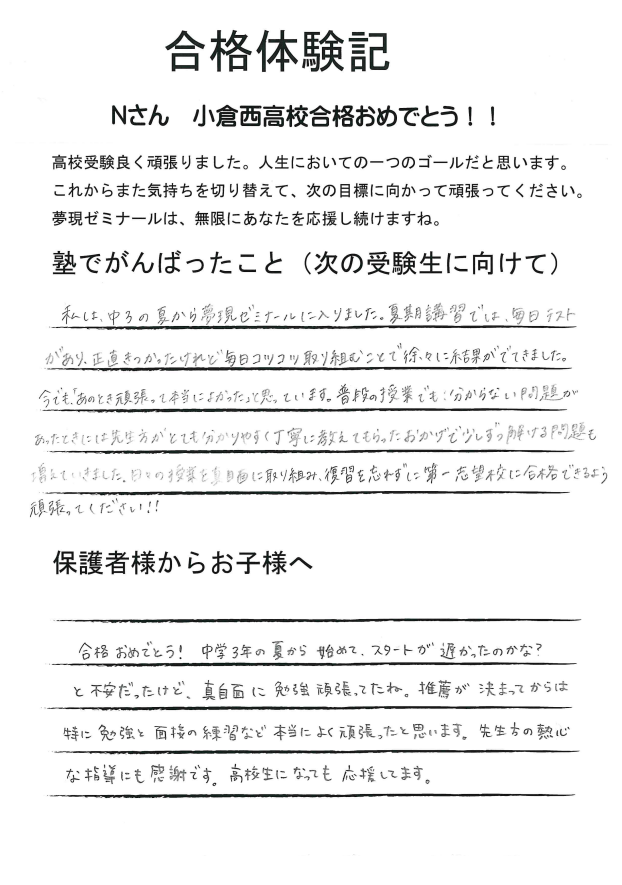 合格体験記
Nさん　小倉西高校合格おめでとう！！
高校受験良く頑張りました。人生においての一つのゴールだと思います。
これからまた気持ちを切り替えて、次の目標に向かって頑張ってください。
夢現ゼミナールは、無限にあなたを応援し続けますね。
塾でがんばったこと（次の受験生に向けて）
私は、中3の夏から夢現ゼミナールに入りました。夏期講習では、毎日テスト
があり、正直きつかったけれど毎日コツコツ取り組むことで徐々に結果がでてきました。
今でも「あのとき頑張って本当によかった」と思っています。普段の授業でも分からない問題が
あったときには先生方がとても分かりやすく丁寧に教えてもらったおかげで少しずつ解ける問題も
増えていきました。日々の授業を真面目に取り組み、復習を忘れずに第一志望校に合格できるよう
頑張ってください!!
保護者様からお子様へ
合格おめでとう! 中学3年の夏から始めて、スタートが遅かったのかな?
と不安だったけど、真面目に勉強頑張ってたね。推薦が決まってからは
特に勉強と面接の練習など本当によく頑張ったと思います。先生方の熱心
な指導にも感謝です。高校生になっても応援してます。